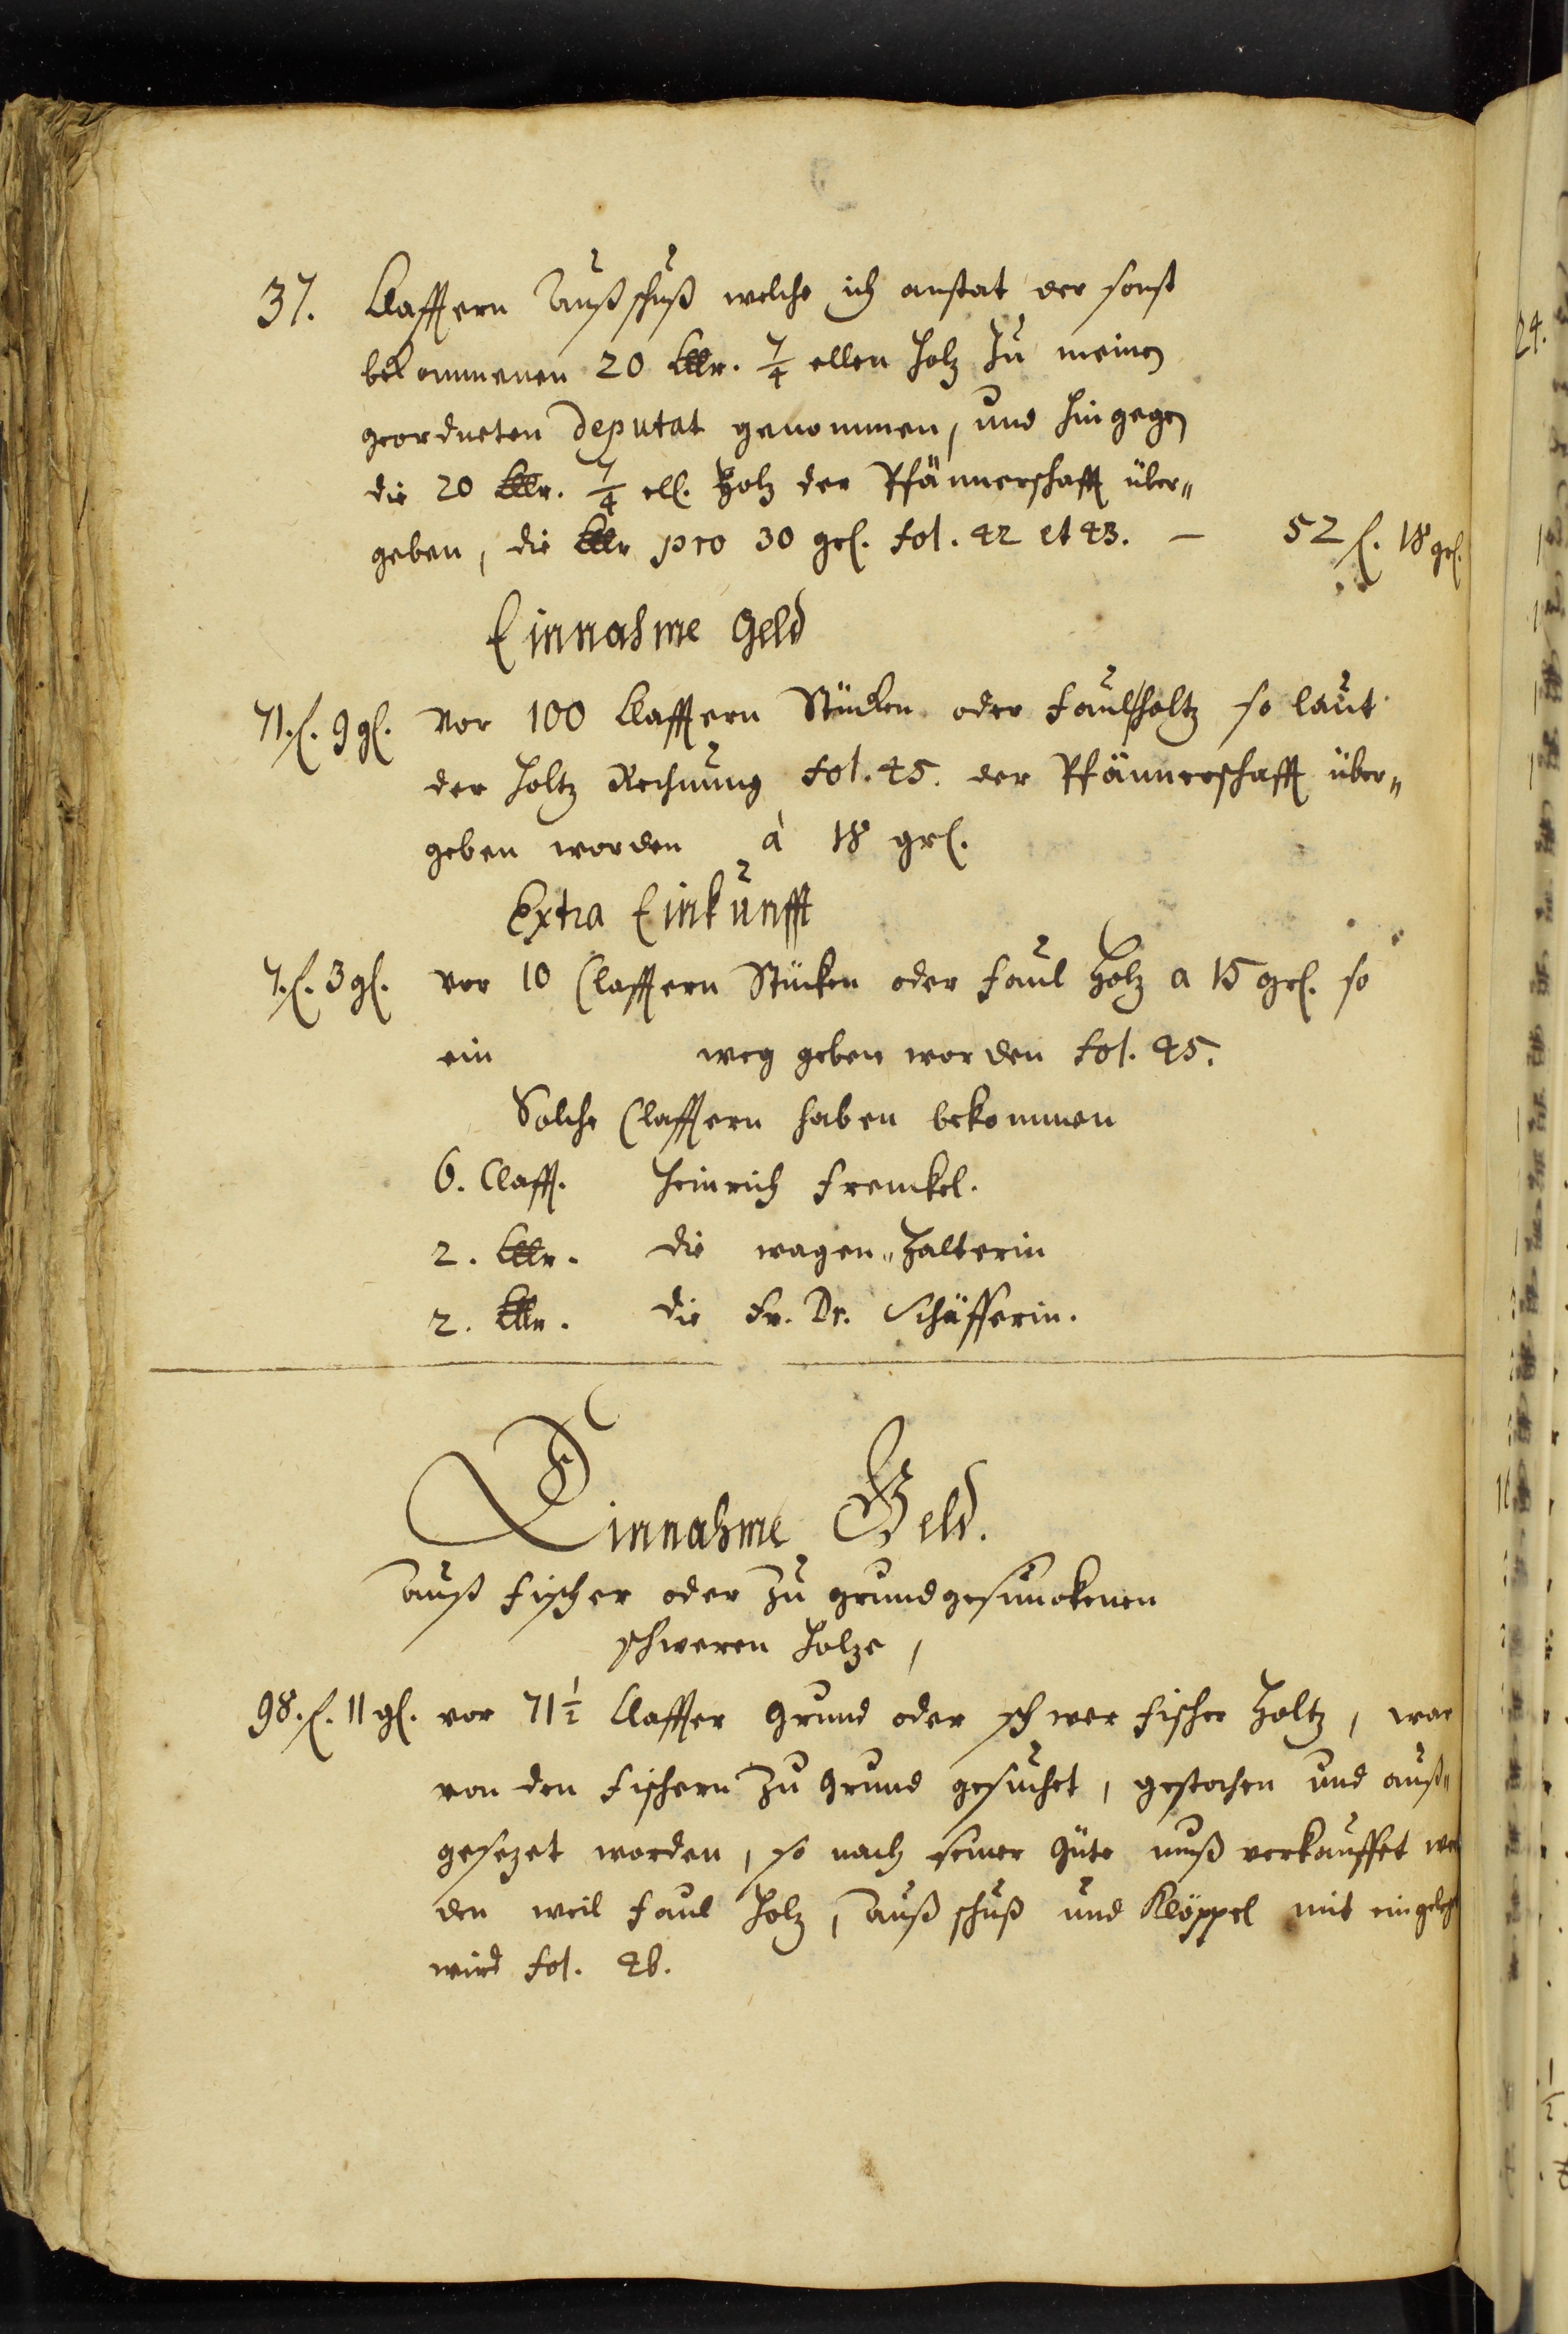 37. Klafftern Außschuß welche ich anstat der sonst
bekommenen 20 Cllr. 7/4 ellen Holz zu meinen
geordneten Deputat genommen, und hingegen
die 20 Cllr. 7/4 ell. Holz der Pfännerschafft über„
geben, die Cllr pro 30 grl. fol. 42 et 43. — 52 f. 18 grl.
Einnahme Geld
71. f. 9 gl. Vor 100 Klafftern Stücken oder Faulholtz so laut
der Holtz Rechnung fol. 45. der Pfännerschafft über„
geben worden à 18 grl.
Extra Einkünfft
7. f. 3 gl. vor 10 Clafftern Stücken oder Faul Holz a 15 grl. so
ein weg geben worden fol. 45.
Solche Clafftern haben bekommen
6. Claff. Heinrich Frenckel.
2. Cllr. die wagen„Halterin
2. Cllr. die Fr. Dr. Schäfferin.
Einnahme Geld.
Auß Fischer oder zu grundgesunckenen
schweren Holze,
98. f. 11 gl. vor 71½ Claffter Grund oder schwer Fischer Holtz, war
von den Fischern zu Grund gesuchet, gestochen und auß„
gesezet worden, so nach seiner Güte muß verkauffet wer
den weil Faul Holz, Außschuß und Klöppel mit eingelegt
wird fol. 46.